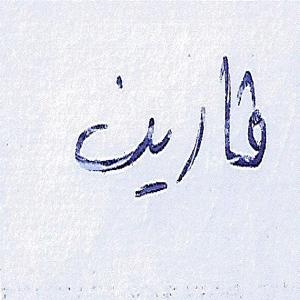 فارين